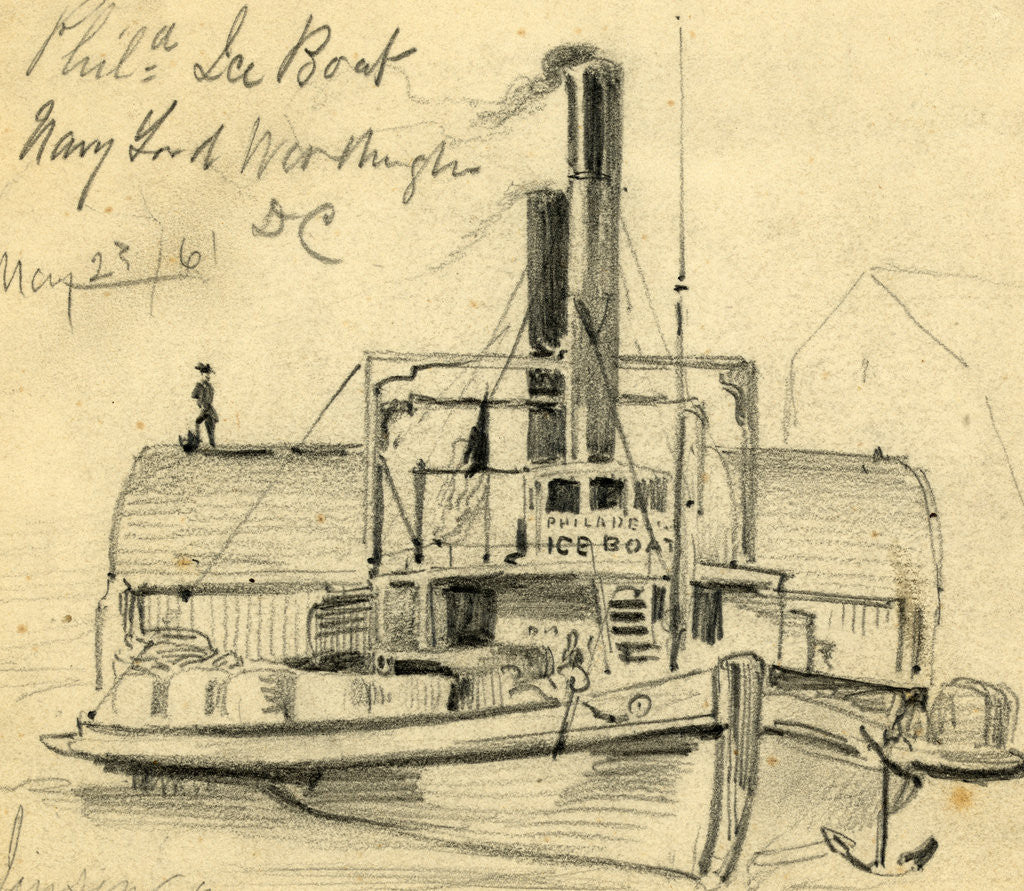 Phila Ice Boat
Navy Yard Washington
DC
May 23/61
PHILADE
ICE BOAT